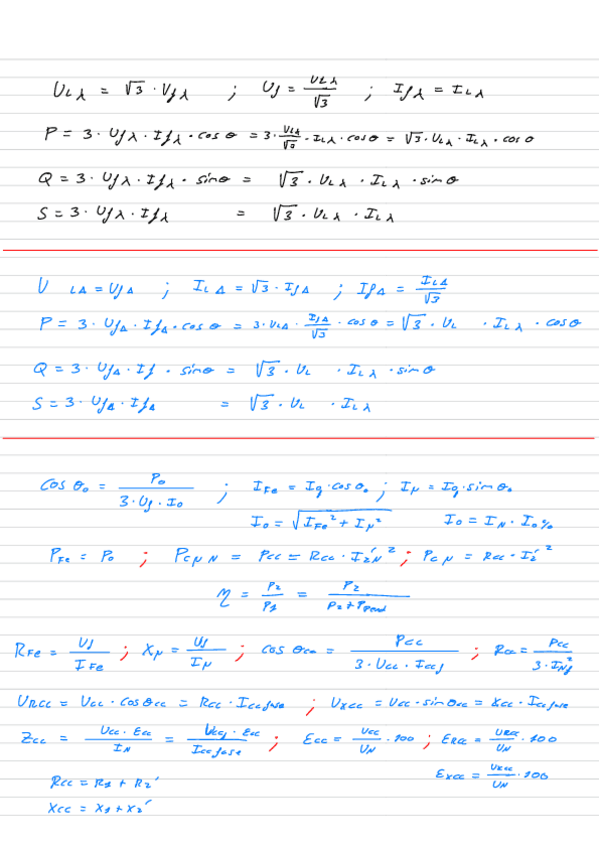 U_Lλ = √3 · U_fλ ; U_f = U_Lλ/√3 ; I_fλ = I_Lλ
P = 3 · U_fλ · I_fλ · cos θ = 3 · U_Lλ/√3 · I_Lλ · cos θ = √3 · U_Lλ · I_Lλ · cos θ
Q = 3 · U_fλ · I_fλ · sin θ = √3 · U_Lλ · I_Lλ · sin θ
S = 3 · U_fλ · I_fλ = √3 · U_Lλ · I_Lλ
U_LΔ = U_fΔ ; I_LΔ = √3 · I_fΔ ; I_fΔ = I_LΔ/√3
P = 3 · U_fΔ · I_fΔ · cos θ = 3 · U_LΔ · I_fΔ/√3 · cos θ = √3 · U_L · I_Lλ · cos θ
Q = 3 · U_fΔ · I_f · sin θ = √3 · U_L · I_Lλ · sin θ
S = 3 · U_fΔ · I_fΔ = √3 · U_L · I_Lλ
cos θ₀ = P₀/(3 · U_f · I₀) ; I_Fe = I_g · cos θ₀ ; I_μ = I_g · sin θ₀
I₀ = √(I_Fe² + I_μ²) I₀ = I_N · I₀%
P_Fe = P₀ ; P_CuN = P_cc = R_cc · I₂'_N² ; P_Cu = R_cc · I₂'²
η = P₂/P₁ = P₂/(P₂ + P_perd)
R_Fe = U_f/I_Fe ; X_μ = U_f/I_μ ; cos θ_cc = P_cc/(3 · U_cc · I_ccf) ; R_cc = P_cc/(3 · I_Nf²)
U_Rcc = U_cc · cos θ_cc = R_cc · I_ccfase ; U_Xcc = U_cc · sin θ_cc = X_cc · I_ccfase
Z_cc = U_cc · E_cc/I_N = U_ccf · E_cc/I_ccfase ; E_cc = U_cc/U_N · 100 ; E_Rcc = U_Rcc/U_N · 100
E_Xcc = U_Xcc/U_N · 100
R_cc = R₁ + R₂'
X_cc = X₁ + X₂'